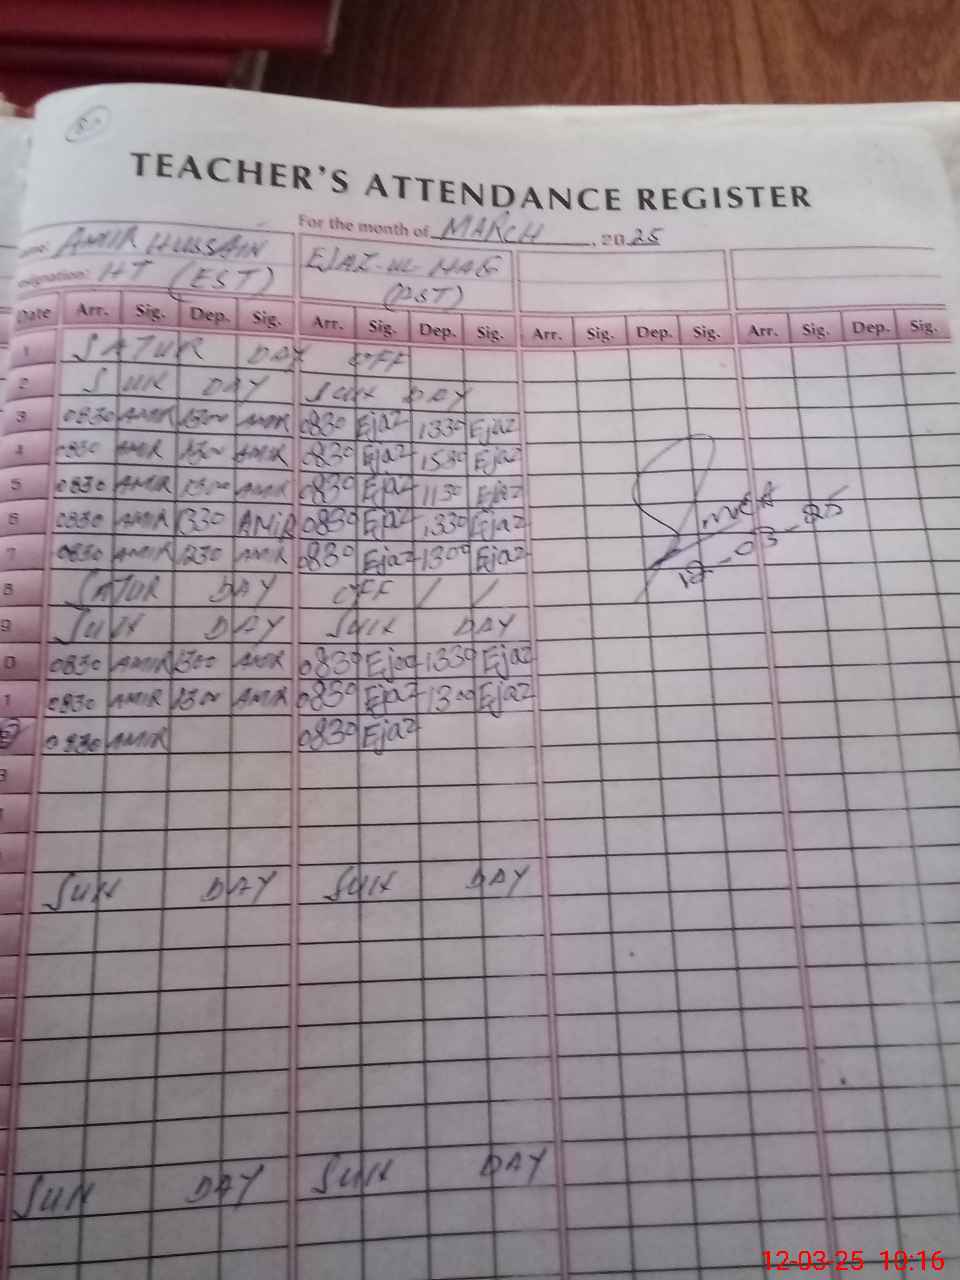 TEACHER'S ATTENDANCE REGISTER
For the month of MARCH, 2025
AMIR HUSSAIN EJAZ-UL-HAQ
HT (EST) (PST)
Date Arr. Sig. Dep. Sig. Arr. Sig. Dep. Sig. Arr. Sig. Dep. Sig. Arr. Sig. Dep. Sig.
1 SATUR DAY OFF
2 SUN DAY SUN DAY
3 0830 AMIR 1300 AMIR 0830 Ejaz 1330 Ejaz
4 0830 AMIR 1300 AMIR 0830 Ejaz 1530 Ejaz
5 0830 AMIR 1300 AMIR 0830 Ejaz 1130 Ejaz
6 0830 AMIR 1330 AMIR 0830 Ejaz 1330 Ejaz
7 0830 AMIR 1230 AMIR 0830 Ejaz 1300 Ejaz
12-03-25
8 SATUR DAY OFF / /
9 SUN DAY SUN DAY
0 0830 AMIR 1300 AMIR 0830 Ejaz 1330 Ejaz
1 0830 AMIR 1300 AMIR 0830 Ejaz 1300 Ejaz
0830 AMIR 0830 Ejaz
3
SUN DAY SUN DAY
SUN DAY SUN DAY
12-03-25 10:16